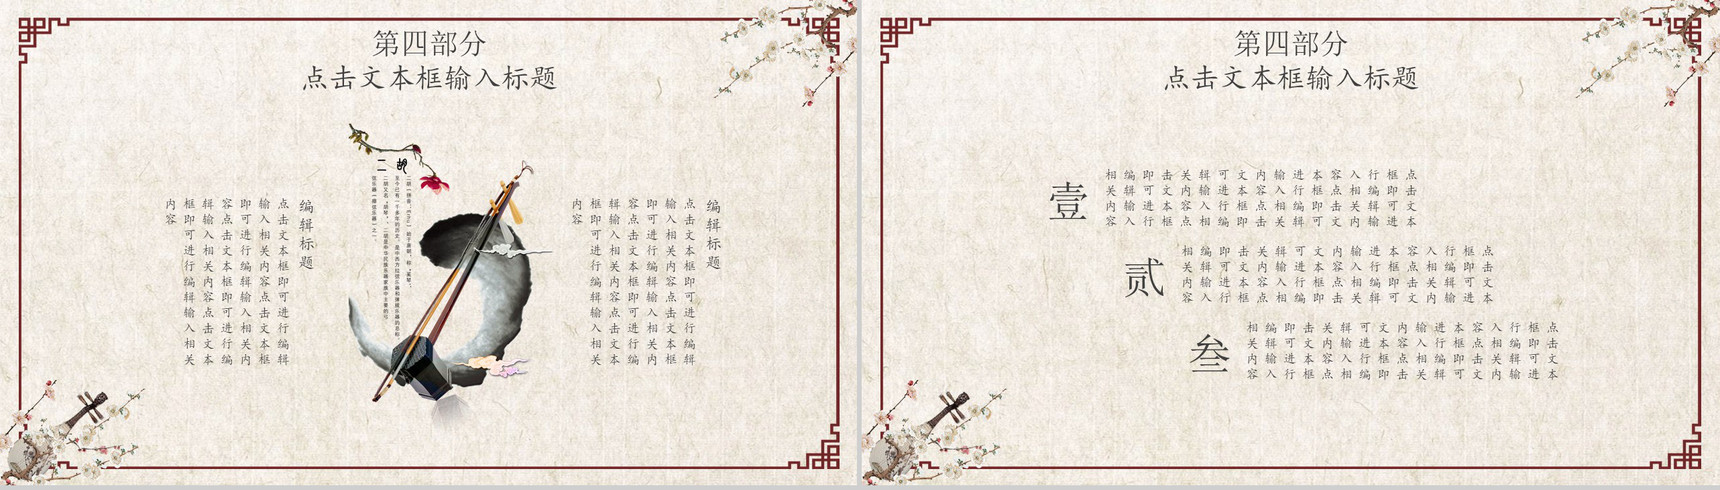 第四部分
点击文本框输入标题
编辑标题
点击文本框即可进行编辑
输入相关内容点击文本框
即可进行编辑输入相关内
容点击文本框即可进行编
辑输入相关内容点击文本
框即可进行编辑输入相关
内容
二胡
二胡（拼音：Erhu）始于唐朝，称“奚琴”，
至今已有一千多年的历史，是中西方拉弦乐器和弹拨乐器的总称
二胡又名“胡琴”，二胡是中华民族乐器家族中主要的弓
弦乐器（擦弦乐器）之一。
编辑标题
点击文本框即可进行编辑
输入相关内容点击文本框
即可进行编辑输入相关内
容点击文本框即可进行编
辑输入相关内容点击文本
框即可进行编辑输入相关
内容
第四部分
点击文本框输入标题
壹
点击文本
框即可进
行编辑输
入相关内
容点击文
本框即可
进行编辑
输入相关
内容点击
文本框即
可进行编
辑输入相
关内容点
击文本框
即可进行
编辑输入
相关内容
贰
点击文本
框即可进
行编辑输
入相关内
容点击文
本框即可
进行编辑
输入相关
内容点击
文本框即
可进行编
辑输入相
关内容点
击文本框
即可进行
编辑输入
相关内容
叁
点击文本
框即可进
行编辑输
入相关内
容点击文
本框即可
进行编辑
输入相关
内容点击
文本框即
可进行编
辑输入相
关内容点
击文本框
即可进行
编辑输入
相关内容